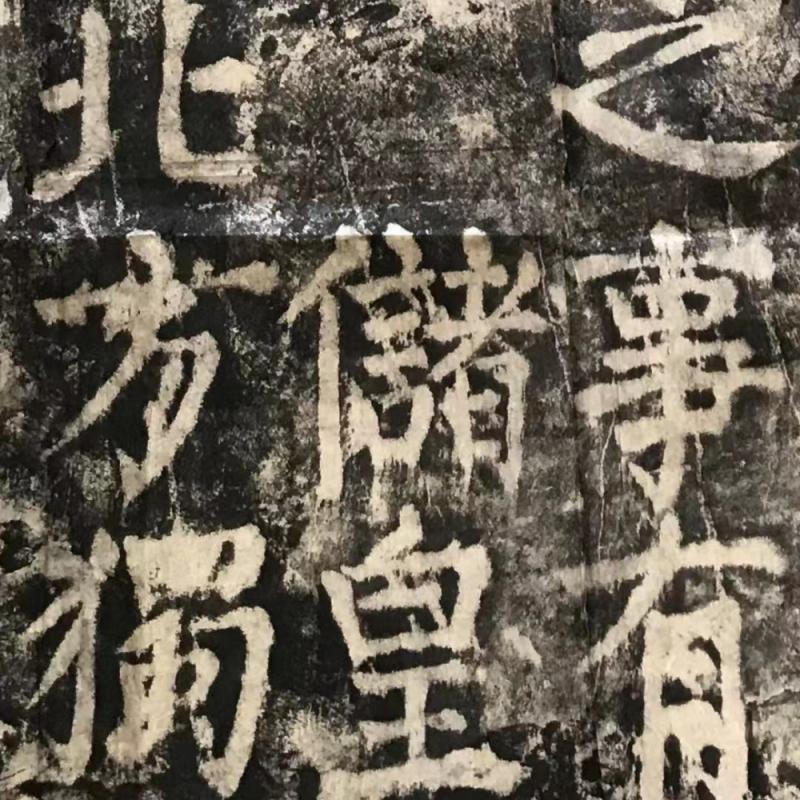 之事有
儲皇
北方獨